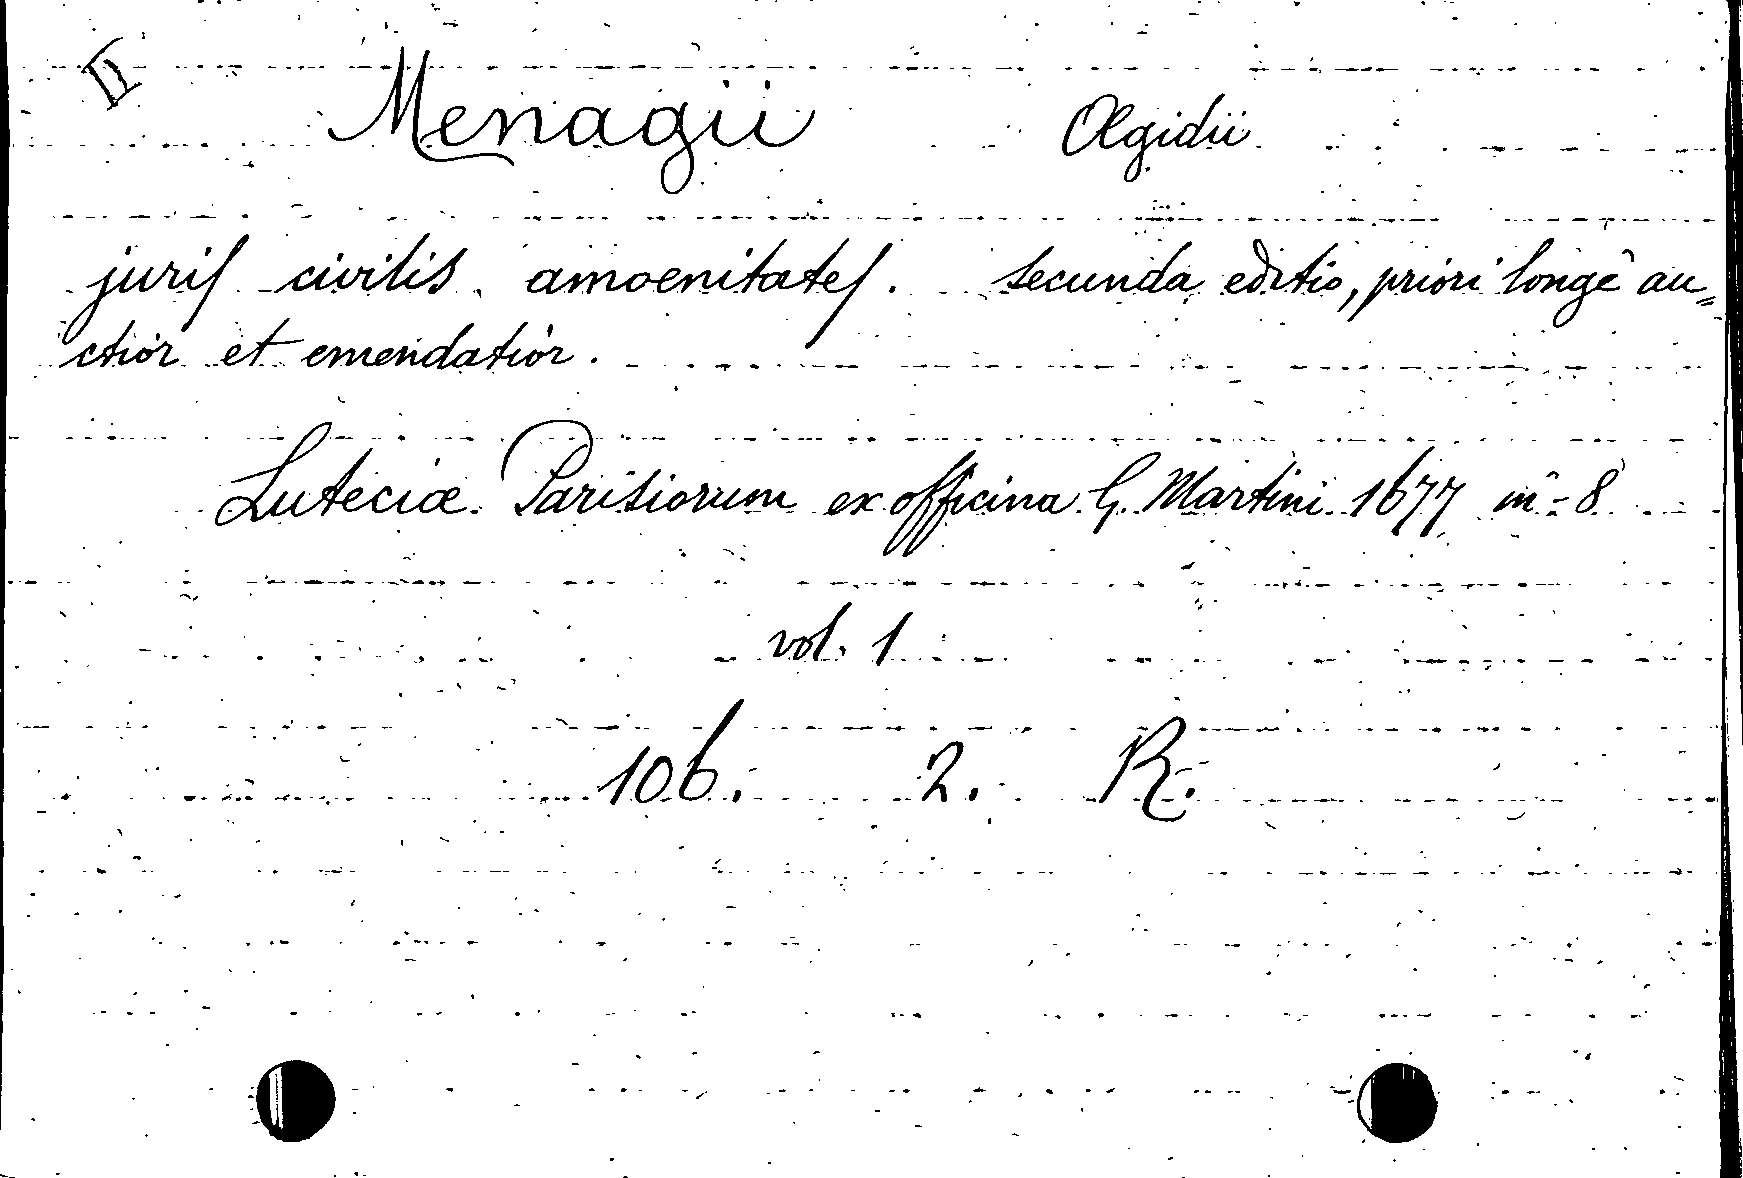 D
Menagii Ægidii
juris civilis amoenitates. secunda editio, priori longè au=
ctior et emendatior.
Luteciæ Parisiorum ex officina G. Martini 1677 in-8
vol. 1
106. 2. R.